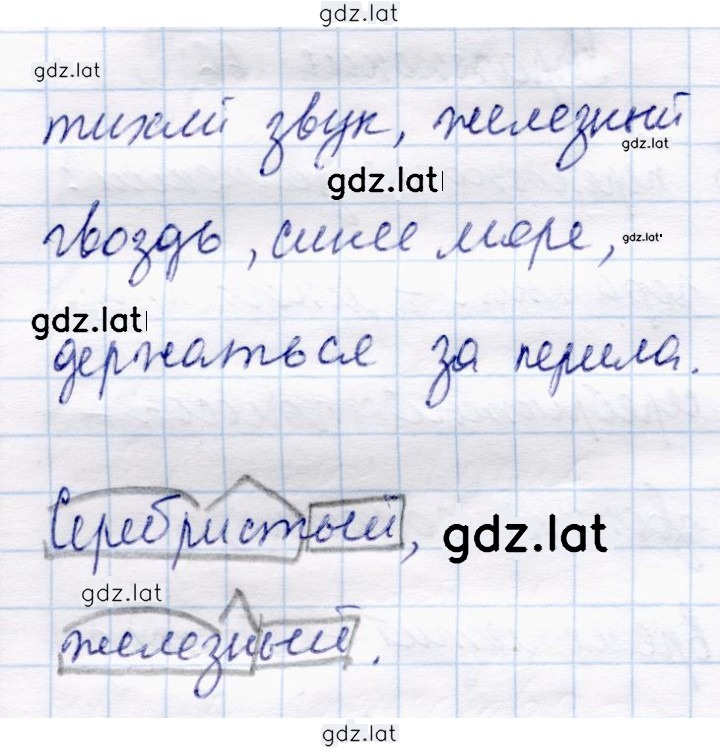 gdz.lat
gdz.lat
тихий звук, железный
gdz.lat
gdz.lat
гвоздь, синее море,
gdz.lat
gdz.lat
держаться за перила.
Серебристый,
gdz.lat
gdz.lat
железный.
gdz.lat